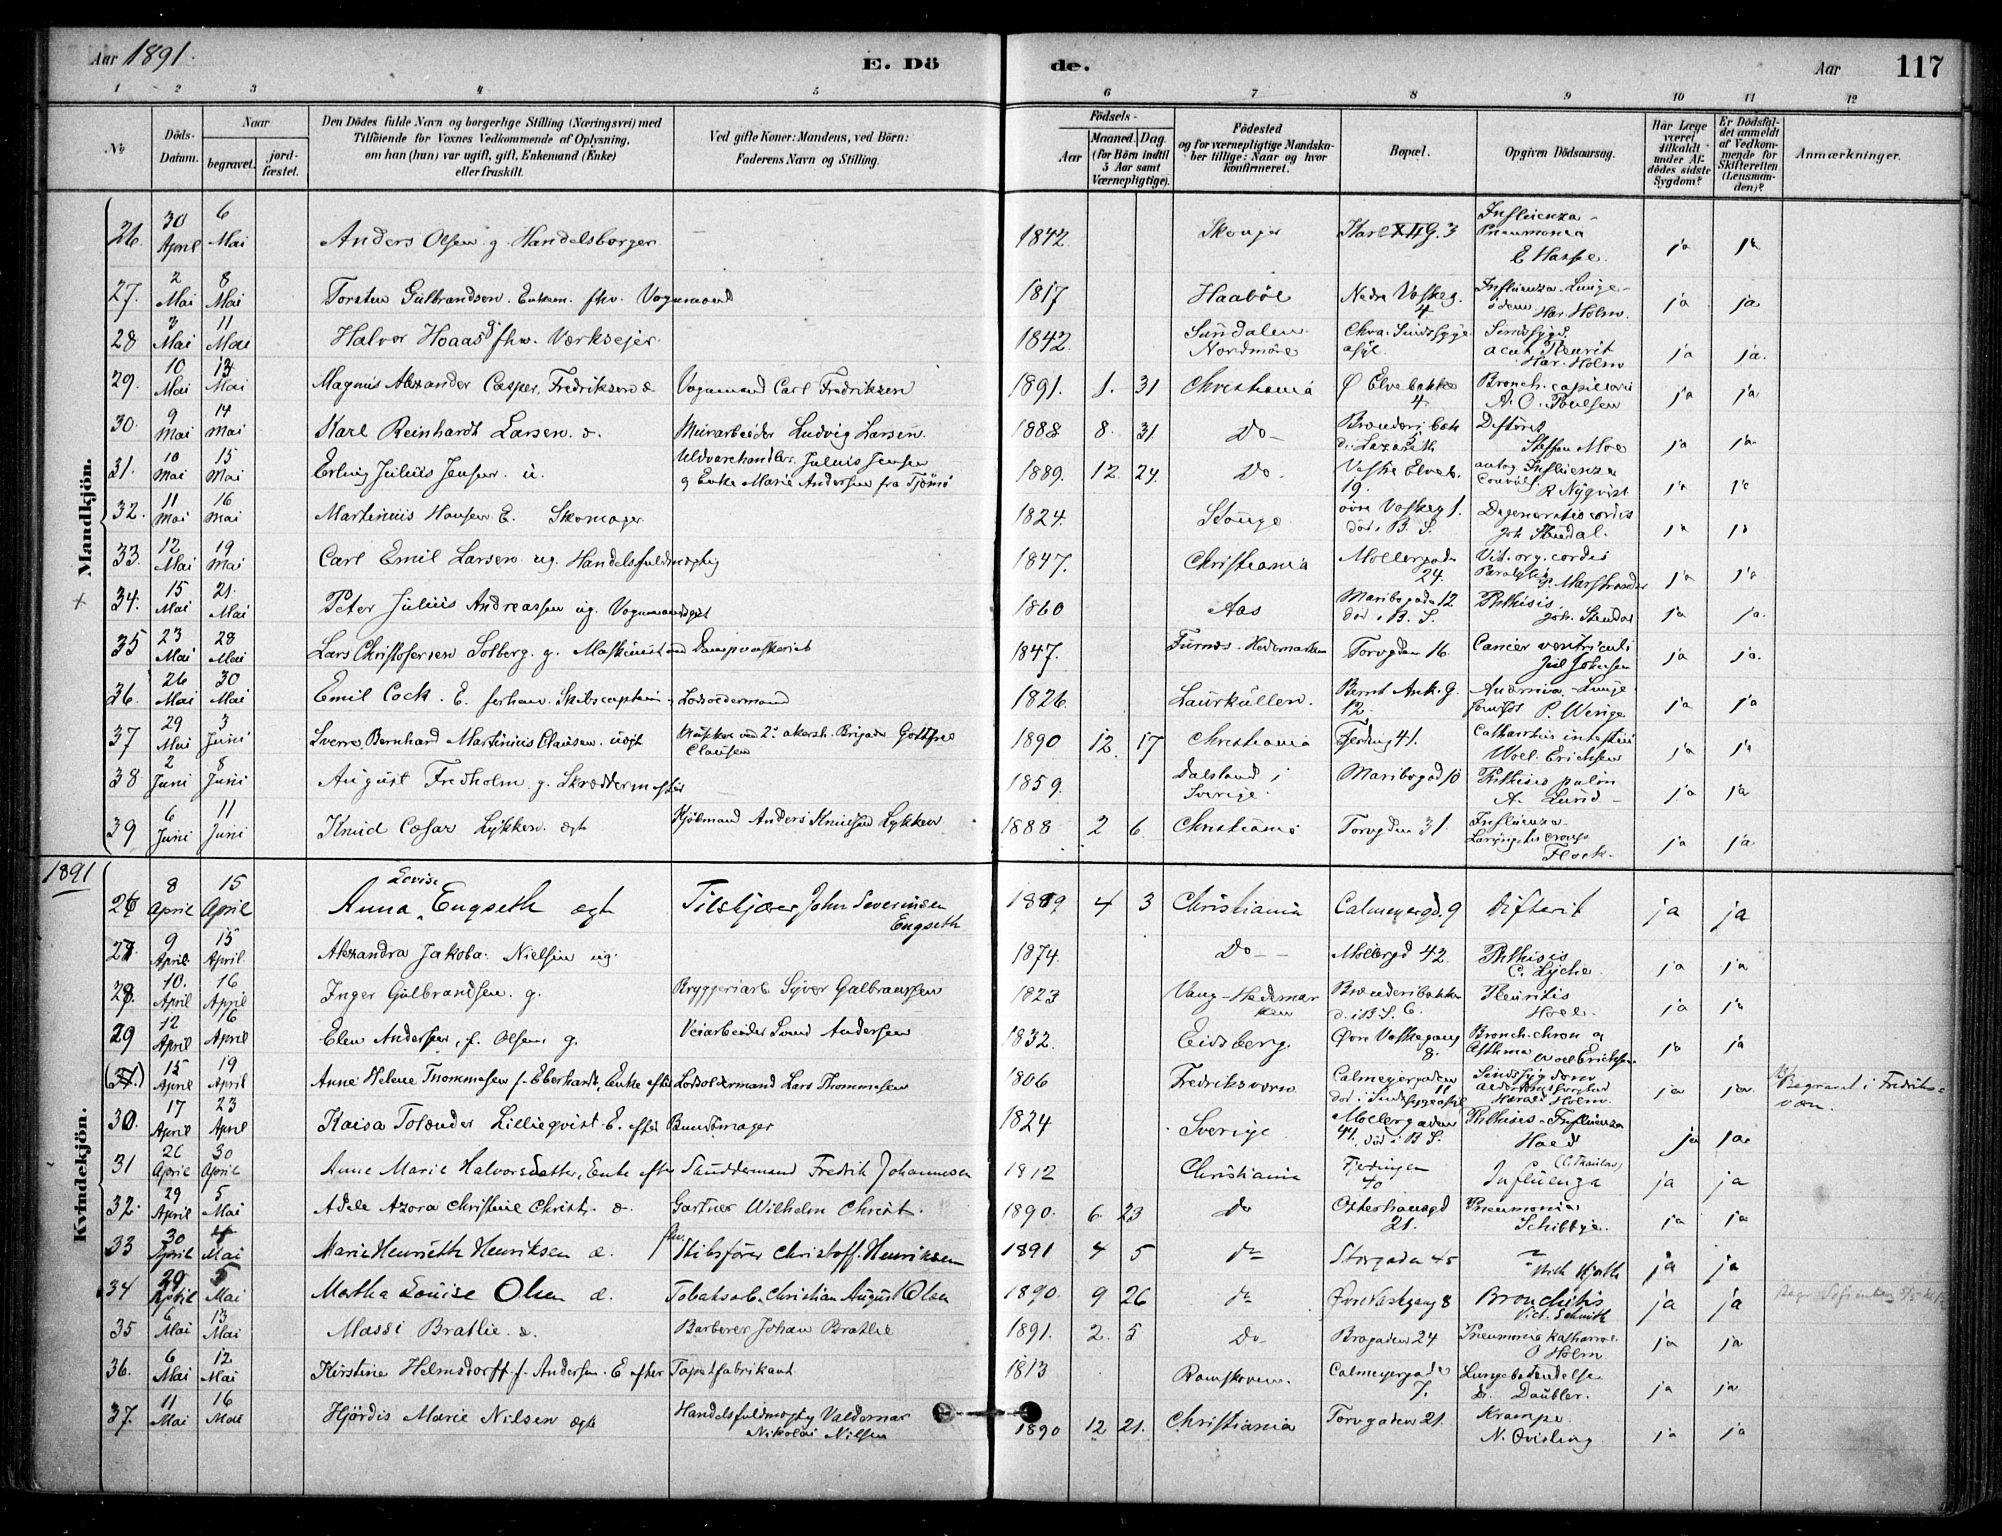 Aar 1891. E. Döde. Aar 117
1 2 3 4 5 6 7 8 9 10 11 12
No
Döds-Datum.
Naar begravet. jordfæstet.
Den Dödes fulde Navn og borgerlige Stilling (Næringsvei) med Tilföiende for Voxnes Vedkommende af Oplysning, om han (hun) var ugift, gift, Enkemand (Enke) eller fraskilt.
Ved gifte Koner: Mandens, ved Börn: Faderens Navn og Stilling.
Födsels- Aar Maaned. Dag. (for Börn indtil 5 Aar samt Værnepligtige).
Födested og for værnepligtige Mandskaber tillige: Naar og hvor konfirmeret.
Bopæl.
Opgiven Dödsaarsag.
Har Læge været tilkaldt under Afdödes sidste Sygdom?
Er Dödsfaldet anmeldt af Vedkommende for Skifteretten (Lensmanden)?
Anmærkninger.
Mandkjön.
26. 30 April 6 Mai Anders Olsen g. Handelsborger 1842 Karl XII G. 3 Influenza-Pneumonia ja ja
27. 2 Mai 8 Mai Torsten Gulbrandsen. Enkem. fhv. Vognmand 1817 Haaböl Nedre Vaskeg. 4 Influenza-Lungeödem Har. Holm. ja ja
28 3 Mai 11 Mai Halvor Hoaas g fhv. Værksejer 1842 Sundalen Nordmöre Chra. Sindssygeasyl Sindssygd. acut Pleurit Har. Holm ja ja.
29. 10 Mai 13 Mai Magnus Alexander Casper Fredriksen æ Vognmand Carl Fredriksen 1891. 1. 31 Christiania Ø Elvebakke 4. Bronch. capillaris A. O. Poulsen ja ja
30. 9 Mai 14 Mai Karl Reinhardt Larsen. æ. Murarbeider Ludvig Larsen. 1888 8. 31 Do- Steffen Moe ja ja
31. 10 Mai 15 Mai Erling Julius Jensen. u. Uldvarehandler Julius Jensen g Enke Marie Andersen fra Tjömö 1889. 12. 24. Do. 19. Influenza R Nyqvist ja ja
32. 11 Mai 16 Mai Martinius Hansen E. Skomager 1824. övre Vaskeg 1. död i B. S. Degeneratio cordis ja ja
33. 12 Mai 19 Mai Carl Emil Larsen ug. Handelsfuldmægtig 1847. Christiania Möllergaden 24. Vit. org. cordis ja ja
34. 15 Mai 21. Mai Peter Julius Andreassen ug. 1860 Aas Maribogaden 12 död i B. S. Phthisis ja ja.
35 23 Mai 28 Mai Lars Christofersen Solberg. g. Maskinist ved Dampvaskeriet 1847. Furnes-Hedemarken Torvgden 16. Cancer ventriculi ja ja.
36. 26 Mai 30 Mai Emil Cock. E. forhen. Skibscaptein, Lodsoldermand 1826. Laurkullen. Bernt Ank. G 12. P. Wenige ja ja
37 29 Mai 3 Juni Sverre Bernhard Martinius Clausen. uægt 1890 12. 17 Christiania Fjerding 41. Woel. Erichsen ja ja
38 2 Juni 8 Juni August Fredholm g. Skræddermester 1859. Dalsland i Sverige. Maribogad 10 Phthisis pulm A. Lund- ja ja
39 6 Juni 11 Juni Knud Cæsar Lykken. ægt Kjölmand Anders Knudsen Lykken 1888 2 6. Christiania Torvgden 31. Influenza- ja ja
Kvindekjön.
1891
26 8 April 15 April Anna Lovise Engseth ægte Tilskjærer John Severinsen Engseth 1889 4 3 Christiania Calmeyergd. 9 Difterit ja ja
27 9 April. 15 April. Alexandra Jakoba. Nielsen ug. 1874. Do- Möllergd 42. Phthisis C. Lyche. ja ja
28. 10. April 16 April Inger Gulbrandsen. g. Bryggeriarb Syver Gulbranssen 1823 Vang-Hedemarken Brænderibakken d. i B. S. 6. Pleuritis Hoel. ja ja
29 12 April 16 April Elen Andersen, f. Olsen g. Veiarbeider Andersen 1832. Eidsberg Øvre Vaskegang 8. Bronch. chron og Asthma Woel Erichsen ja ja
15 April 19 April Anne Helene Thommesen f. Eberhardt, Enke efter Lodsoldermand Lars Thommesen 1806 Fredriksværn Calmeyergaden 11 död i Sindssygeasyl Sindssygdom Alderdomssvaghed Harald Holm. ja ja Begravet i Fredriksværn.
30 17 April 23 April Kaisa Tolander Lillieqvist. E. efter Bundtmager 1824 Sverige Möllergaden 41. död i B. S. Phthisis-Influenza ja ja
31 26 April 30 April Anne Marie Halvorsdatter, Enke efter Fredrik Johannesen 1812 Christiania Fjerdingen 40 Influenza ja ja
32. 29 April 5 Mai Adele Azora Christine Christ. æ. Gartner Wilhelm Christ. 1890. 6. 23 do Osterhausgd 21. Pneumonia Schibbye. ja ja
33 30 April 4 Mai Marie Henriette Henriksen æ. fhv. Skibsförer Christoff. Henriksen 1891 4 5 do Storgaden 45 Hjorth ja ja
34 29 April 5 Mai Martha Louise Olsen æ. Tobaksarb. Christian August Olsen 1890. 9 26 do Øvre Vaskgang 8 Bronchitis Vict. Schmith ja ja
35 6 Mai 13 Mai Massi Bratlie. æ. Barberer Johan Bratlie 1891. 2. 5 Do Brogaden 24 Pneumonia katharral. Holm ja ja
36. 6 Mai 12 Mai Kirstine Helmsdorff f. Andersen. E efter Tapetfabrikant 1813 Calmeyergade 7. Lungebetændelse Daubler. ja ja
37. 11 Mai 16 Mai Hjördis Marie Nilsen ægte Handelsfuldmægtig Valdemar Nikolai Nilsen 1890 12 21. Christiania Torvgaden 21. Krampe. N. Qvisling ja ja